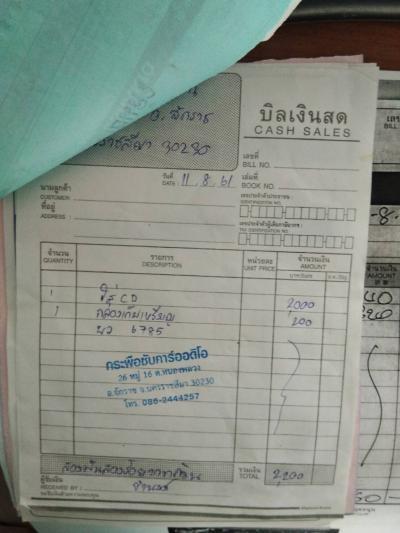 อ. จักราช
30230
บิลเงินสด
CASH SALES
เลขที่
BILL NO.
วันที่
DATE: 11.8.61
เล่มที่
BOOK NO.
นามลูกค้า
CUSTOMER:
ที่อยู่
ADDRESS:
เลขประจำตัวประชาชน
IDENTIFICATION NO.
เลขประจำตัวผู้เสียภาษีอากร
TAX IDENTIFICATION NO.
จำนวน รายการ หน่วยละ จำนวนเงิน
QUANTITY DESCRIPTION UNIT PRICE AMOUNT
1 CD 2,000
1 กล่องเก็บเหรียญ 200
6785
กระพือซับคาร์ออดิโอ
26 หมู่ 16 ต.หนองพลวง
อ.จักราช จ.นครราชสีมา 30230
โทร. 086-2444257
รวมเงิน
TOTAL 2,200
ผู้รับเงิน
RECEIVED BY